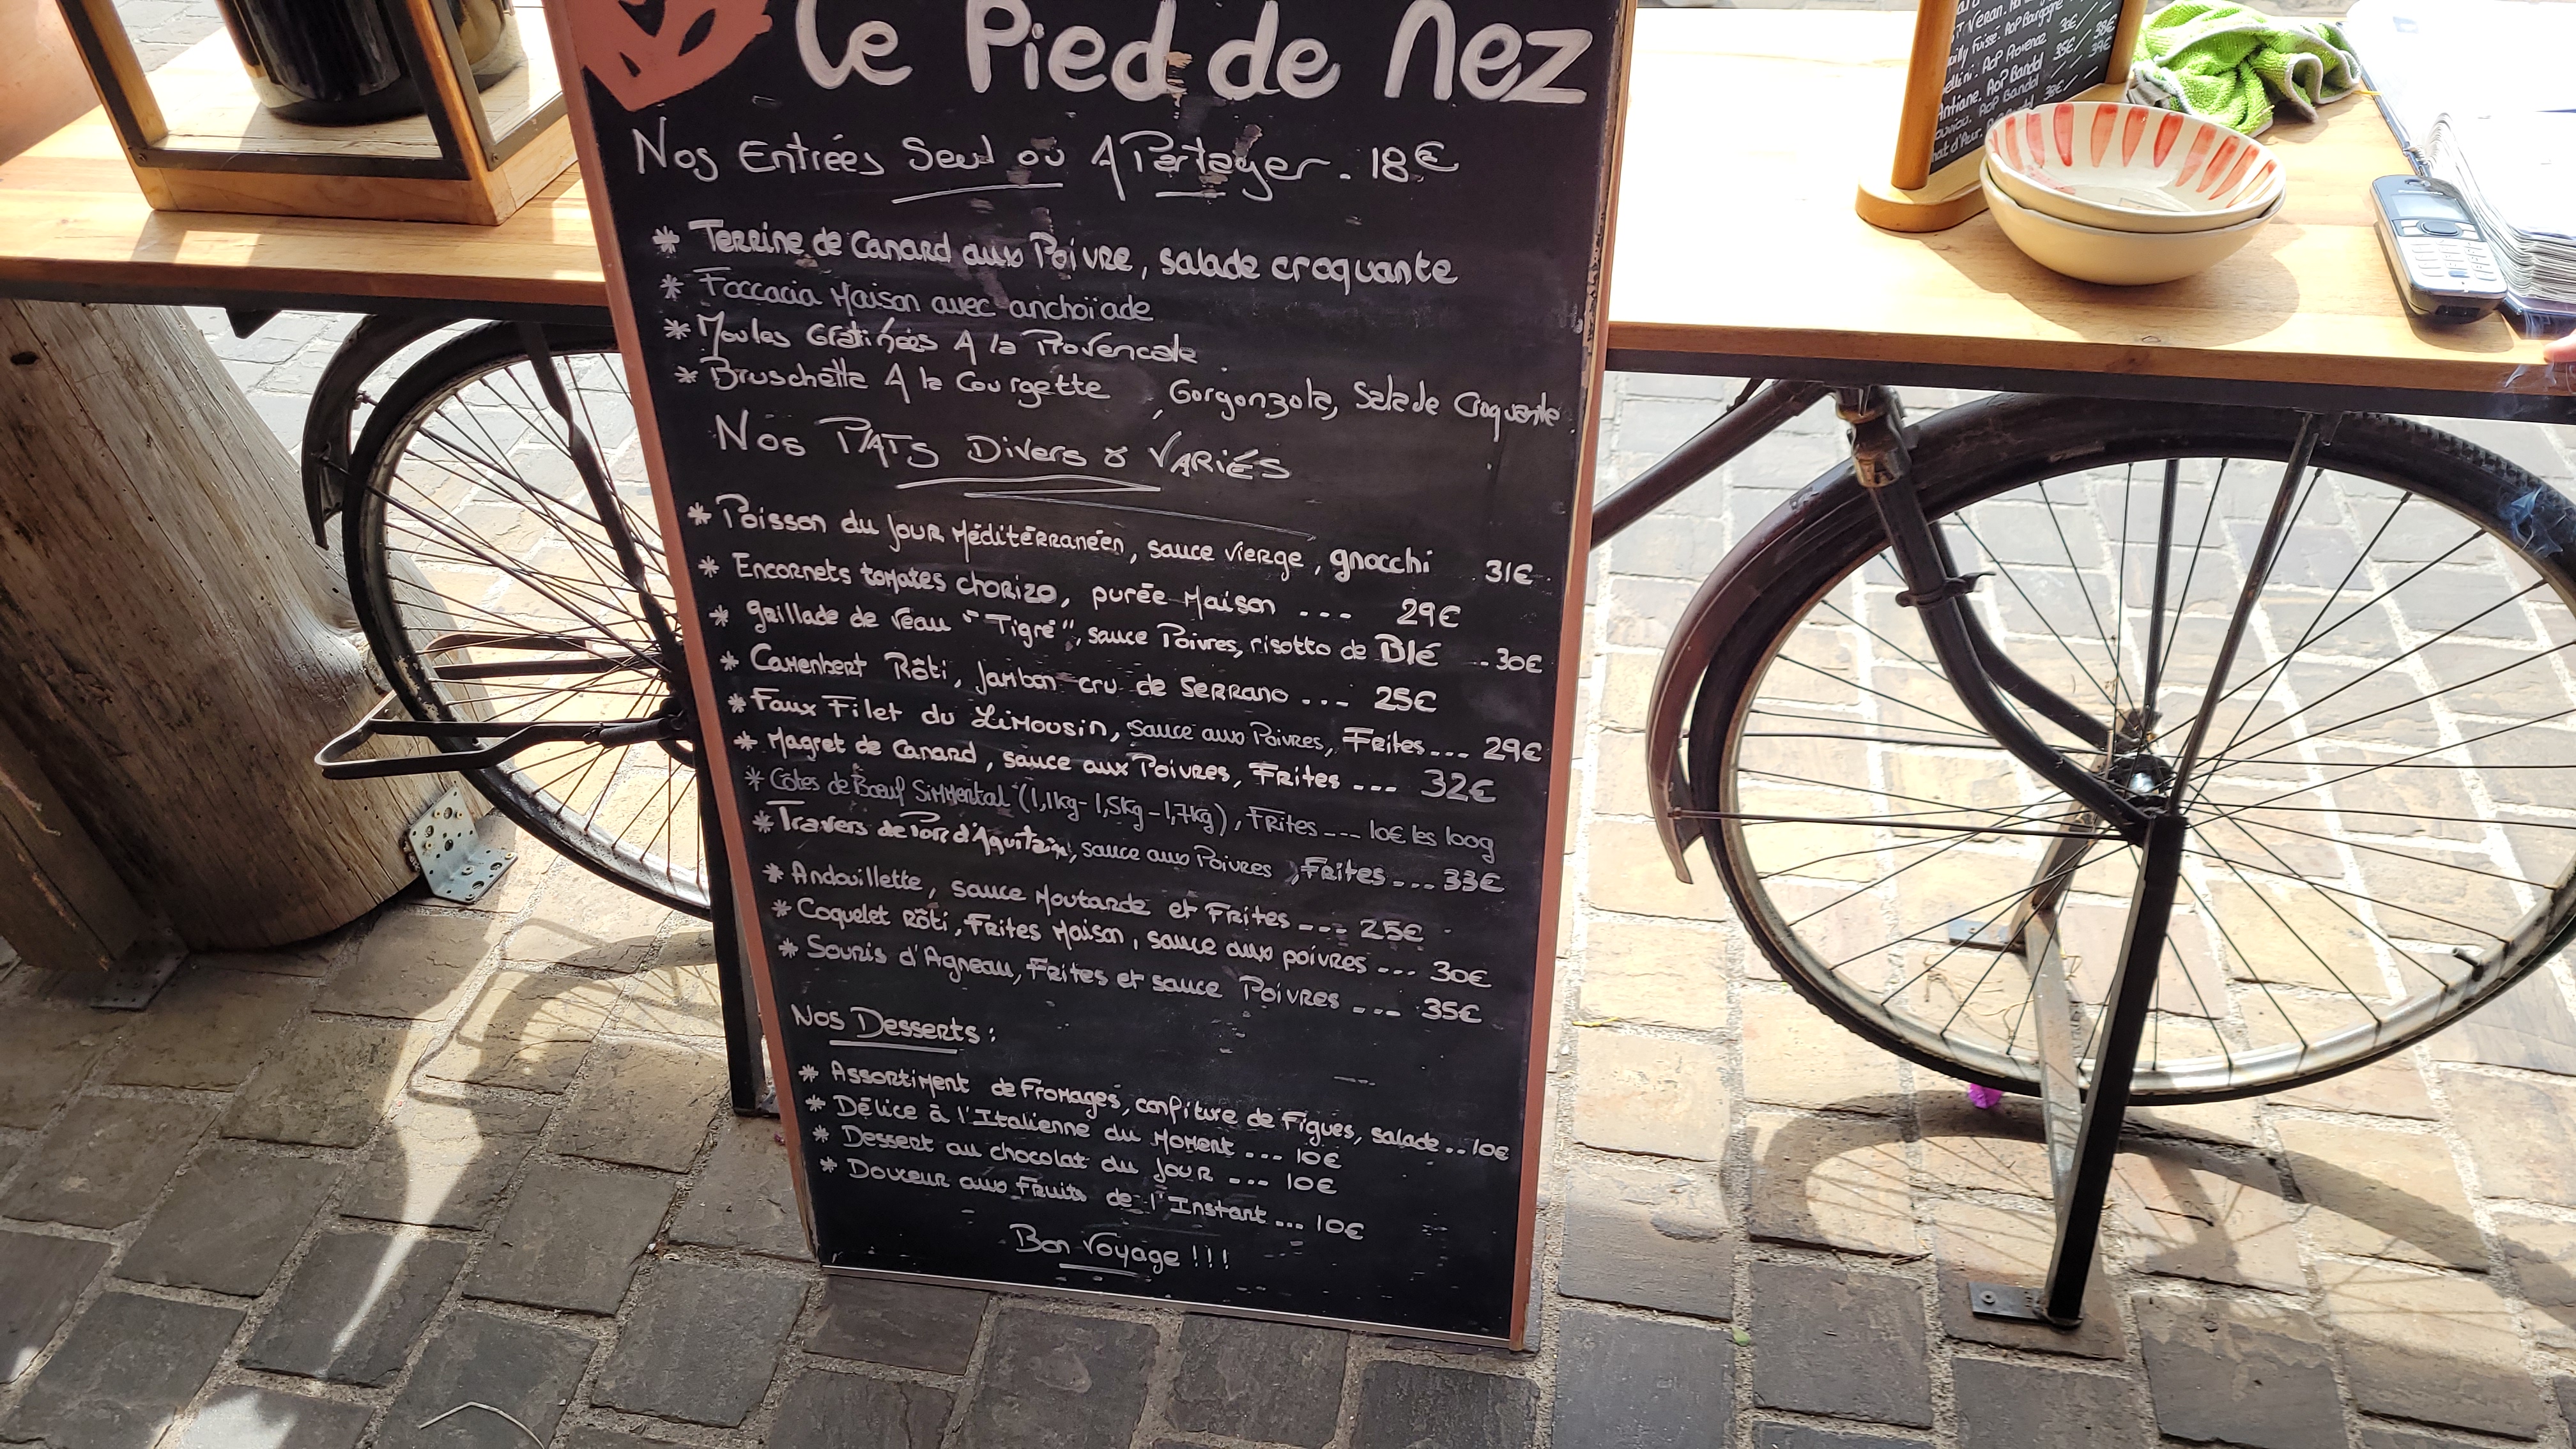 Le Pied de Nez
Nos Entrées Seul ou A Partager. 18€
* Terrine de Canard aux Poivre, salade croquante
* Foccacia Maison avec anchoïade
* Moules Gratinées A la Provencale
* Bruschette A la Courgette, Gorgonzola, Salade Croquante
Nos PATS Divers & VARIÉS
* Poisson du Jour Méditérranéen, sauce vierge, gnocchi . 31€.
* Encornets tomates chorizo, purée Maison ... 29€
* grillade de veau "Tigré", sauce Poivres, risotto de Blé ..30€
* Camenbert Rôti, Jambon cru de Serrano ... 25€
* Faux Filet du Limousin, sauce aux Poivres, Frites... 29€
* Magret de Canard, sauce aux Poivres, Frites ... 32€
* Côtes de Bœuf Simmental (1,1kg-1,5kg-1,7kg), Frites ... 10€ les 100g
* Travers de Porc d'Aquitain, sauce aux Poivres, Frites... 33€
* Andouillette, sauce Moutarde et Frites ... 25€
* Coquelet Rôti, Frites Maison, sauce aux poivres ... 30€
* Souris d'Agneau, Frites et sauce Poivres ... 35€
Nos Desserts:
* Assortiment de Fromages, confiture de Figues, salade..10€
* Délice à l'Italienne du Moment ... 10€
* Dessert au chocolat du Jour ... 10€
* Douceur aux Fruits de l'Instant ... 10€
Bon Voyage !!!
Veran.
Fuissé. AOP Bourgogne
AOP Provence 30€/38€
AOP Bandol 35€/39€
AOP Bandol